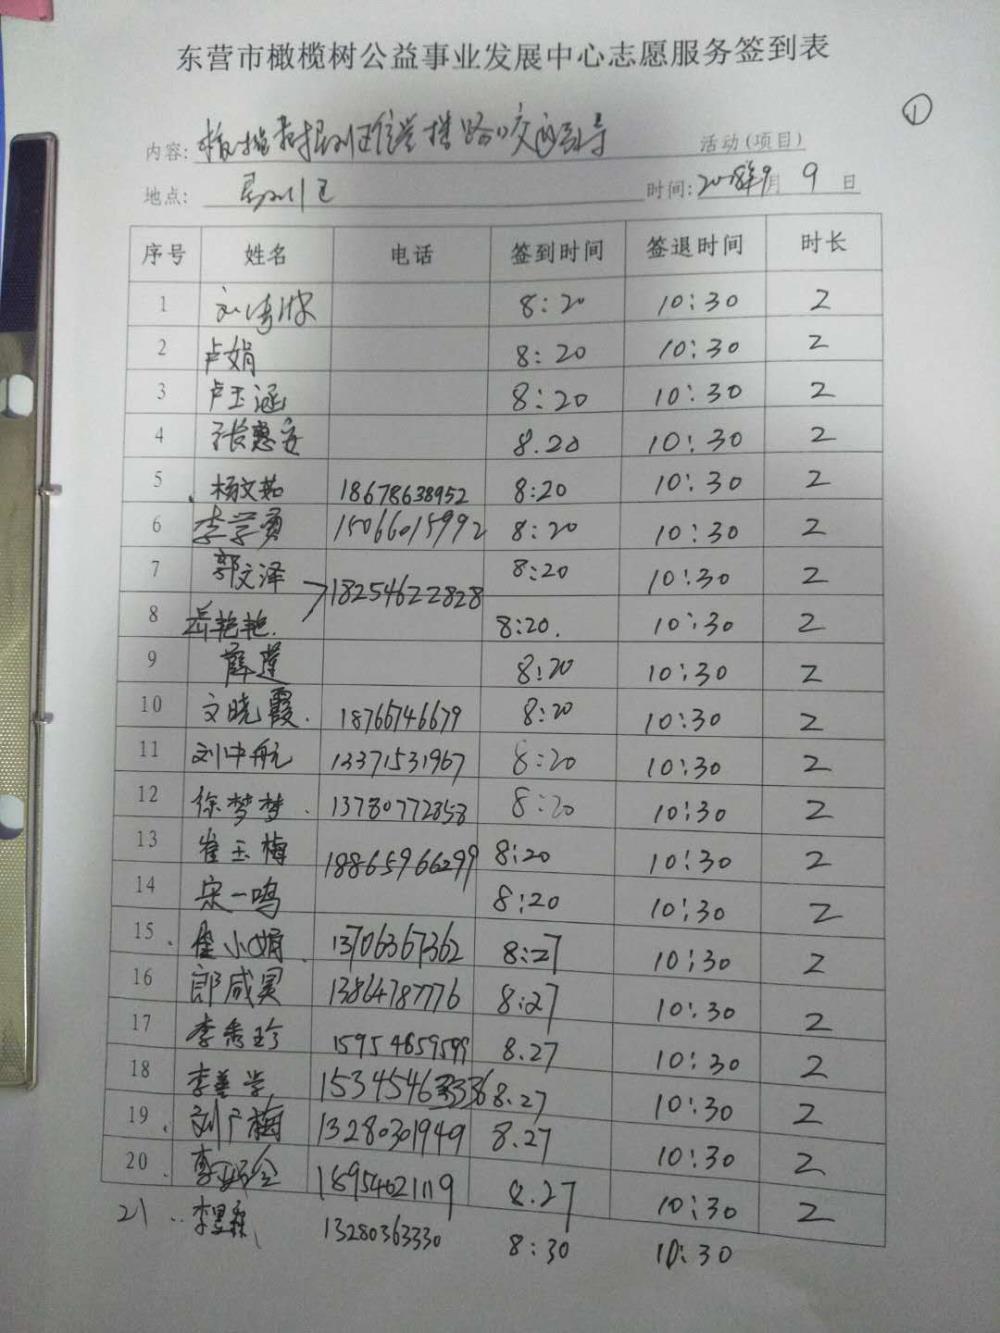 东营市橄榄树公益事业发展中心志愿服务签到表
①
内容: 路口交通引导 活动(项目)
地点: 垦利区 时间: 2018年9月9日
序号 姓名 电话 签到时间 签退时间 时长
1 8:20 10:30 2
2 卢娟 8:20 10:30 2
3 卢玉涵 8:20 10:30 2
4 张惠安 8.20 10:30 2
5 杨文茹 18678638952 8:20 10:30 2
6 李学勇 15066015992 8:20 10:30 2
7 郭文泽 18254622828 8:20 10:30 2
8 岳艳艳. 8:20. 10:30 2
9 薛莲 8:20 10:30 2
10 文晓霞. 18766746679 8:20 10:30 2
11 刘中航 13371531967 8:20 10:30 2
12 徐梦梦. 13780772858 8:20 10:30 2
13 崔玉梅 18865966299 8:20 10:30 2
14 宋一鸣 8:20 10:30 2
15 崔小娟 13706367362 8:27 10:30 2
16 郎咸昊 13864787776 8:27 10:30 2
17 李秀珍 15954659599 8.27 10:30 2
18 李善学 8.27 10:30 2
19 刘广梅 13280301949 8.27 10:30 2
20 18954621119 8.27 10:30 2
21 13280363330 8:30 10:30